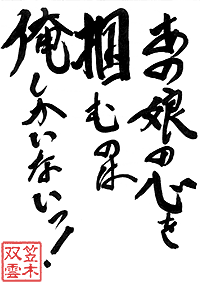 あの娘の心を
掴むのは
俺しかいないっ!
笠木
双雲